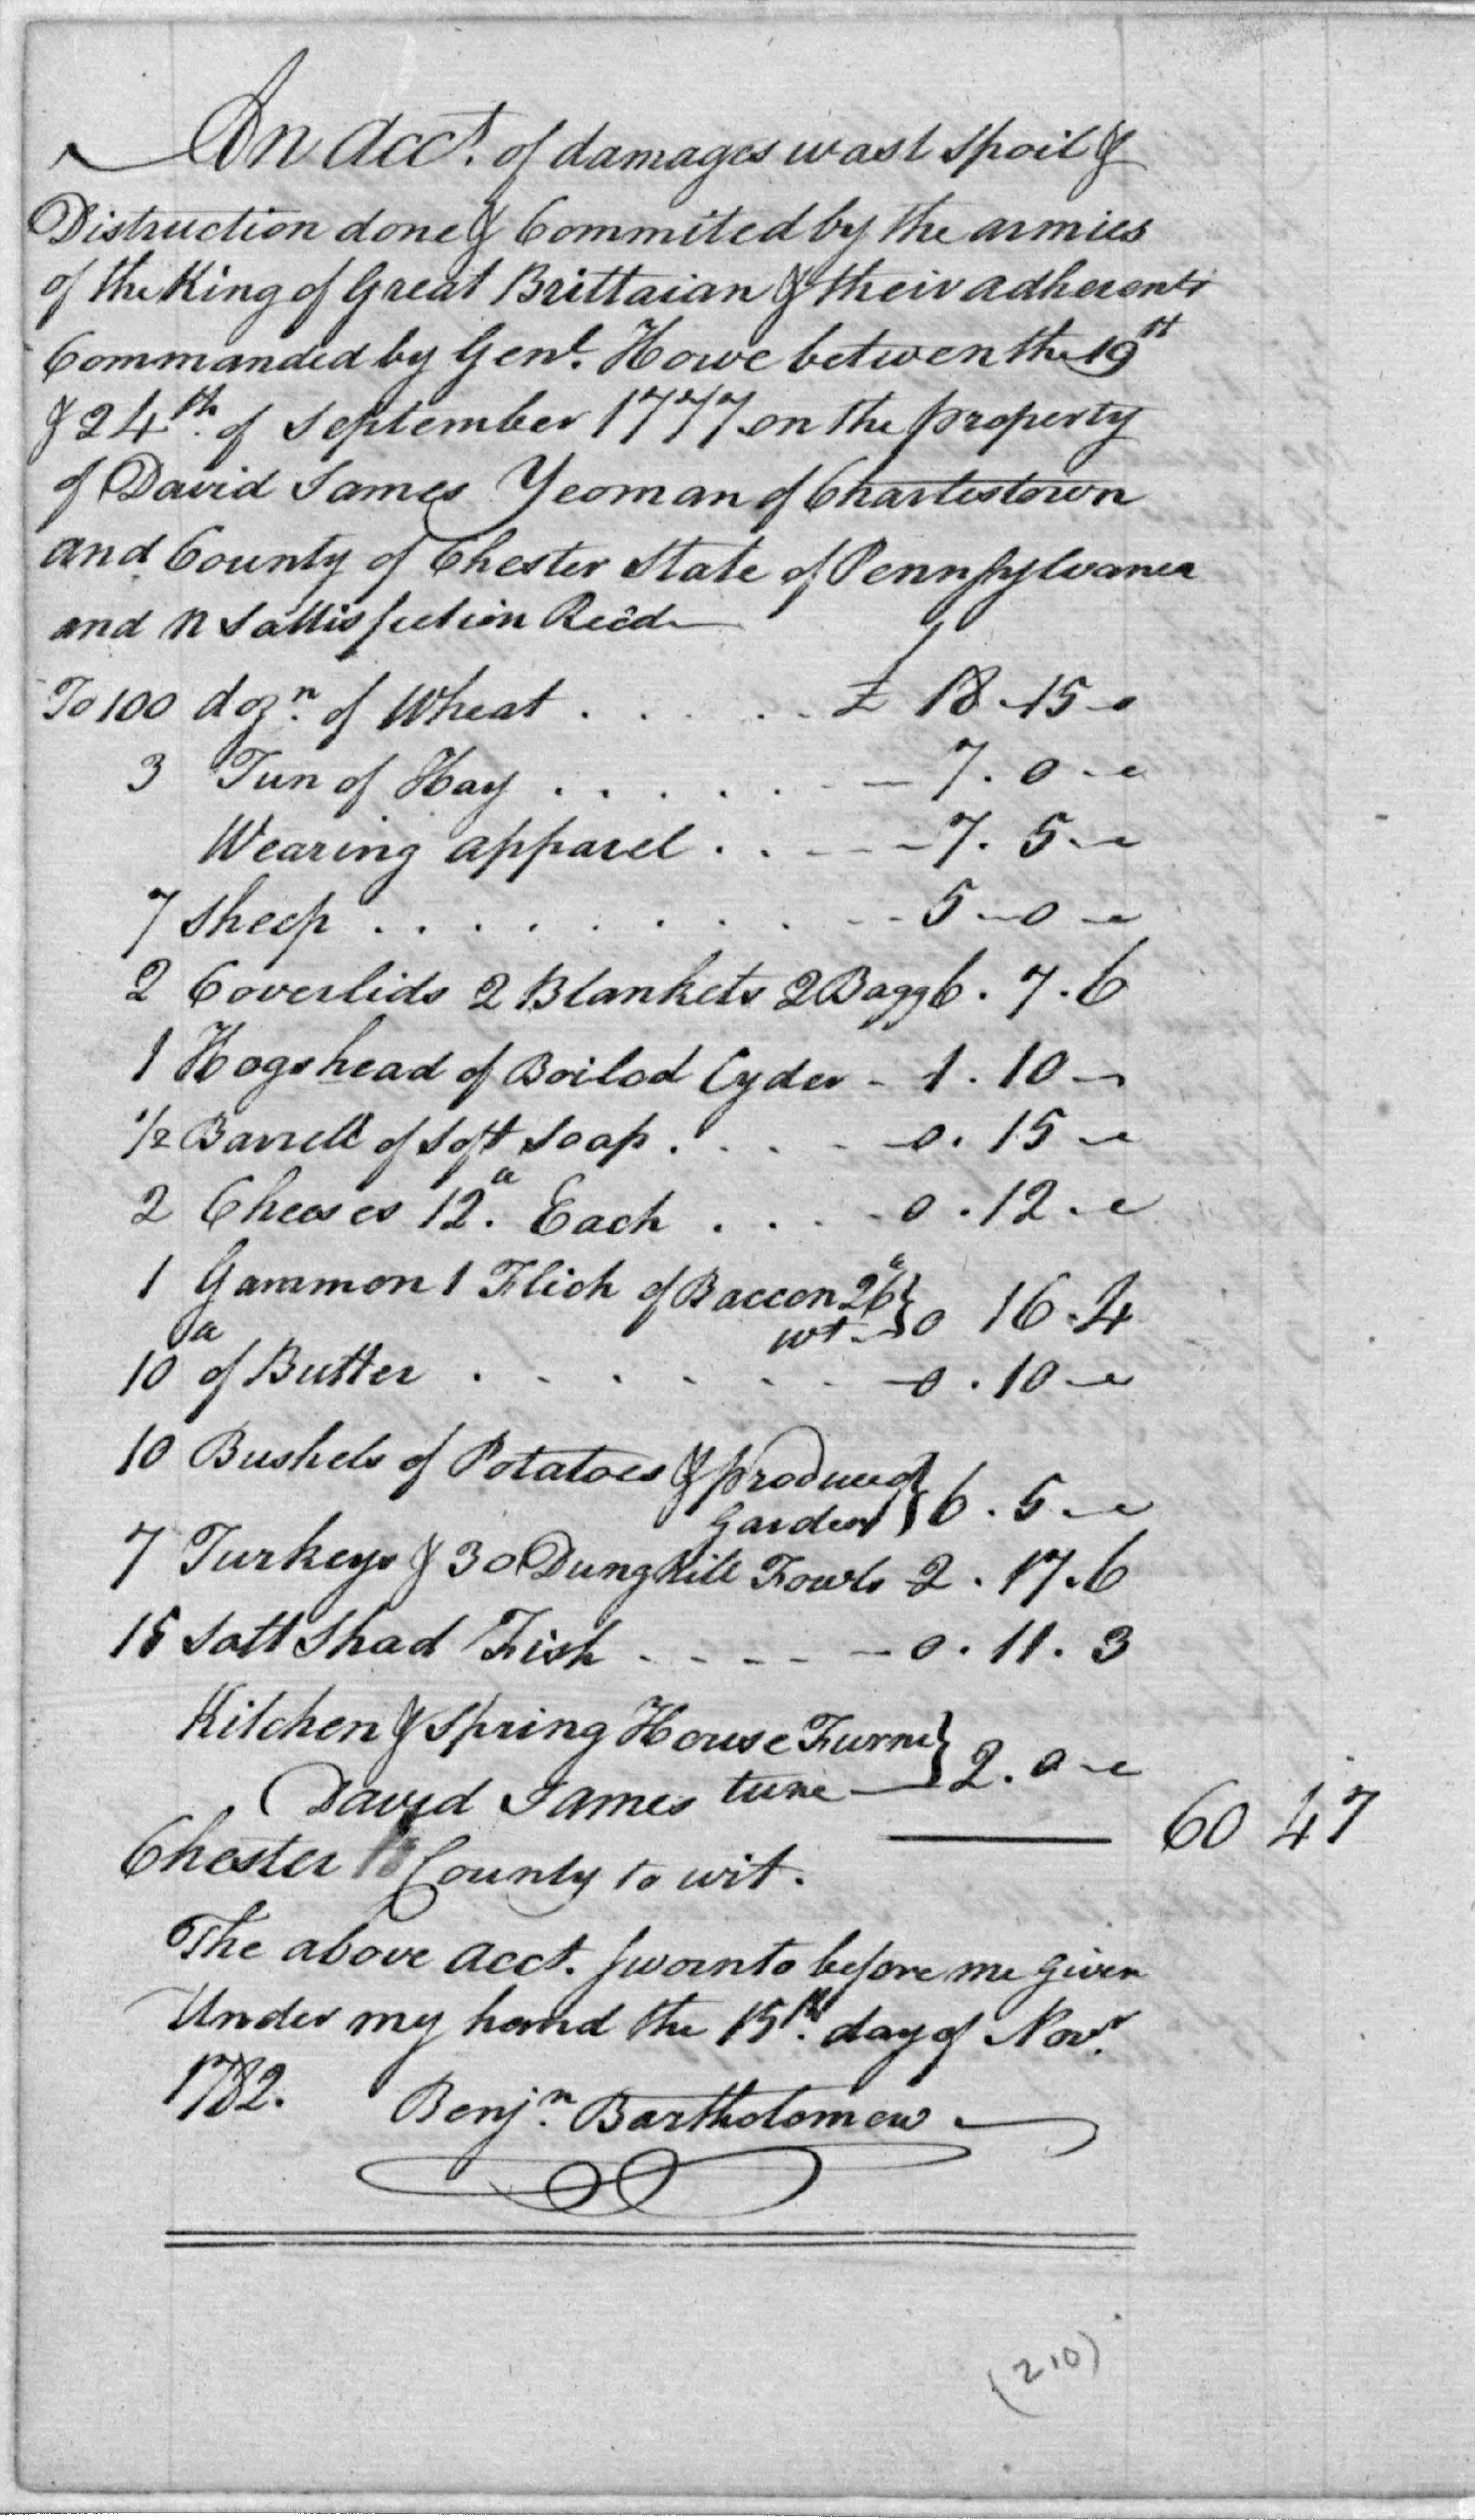 An Acct. of damages wast Spoil &
Distruction done & Commited by the armies
of the King of Great Brittaian & their adherents
Commanded by Genl. Howe betwen the 19th
& 24th. of September 1777 on the property
of David James Yeoman of Charlestown
and County of Chester State of Pennsylvanea
and n Sattisfection Recd
To 100 dozn. of Wheat . . . . . £ 18-15-0
3 Tun of Hay . . . . . . - 7. 0 - 0
Wearing apparel . . - - - 7. 5 - 0
7 Sheep . . . . . . . . . - - 5 - 0 - 0
2 Coverlids 2 Blankets 2 Bagg 6. 7. 6
1 Hogshead of Boilod Cyder - 1. 10 -
1/2 Barrell of Soft Soap . . . . - 0. 15 - 0
2 Cheeses 12.a Each . . . . - 0. 12 - 0
1 Gammon 1 Flich of Baccon 26a } 0 16. 4
wt -
10a of Butter . . . . . . . - 0. 10 - 0
10 Bushels of Potatoes & produce of } 6. 5 - 0
Garden
7 Turkeys & 30 Dunghill Fowls 2. 17. 6
15 Salt Shad Fish - - - - - 0. 11. 3
Kitchen & Spring House Furni } 2. 0 - 0
David James ture
60 4 7
Chester County to wit.
The above acct. sworn to before me given
Under my hand the 15th. day of Novr.
1782. Benjn. Bartholomew
(210)